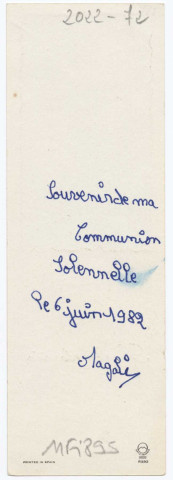 2022-72
Souvenir de ma
Communion
Solennelle
le 6 juin 1982
Magali
PRINTED IN SPAIN
MFi895